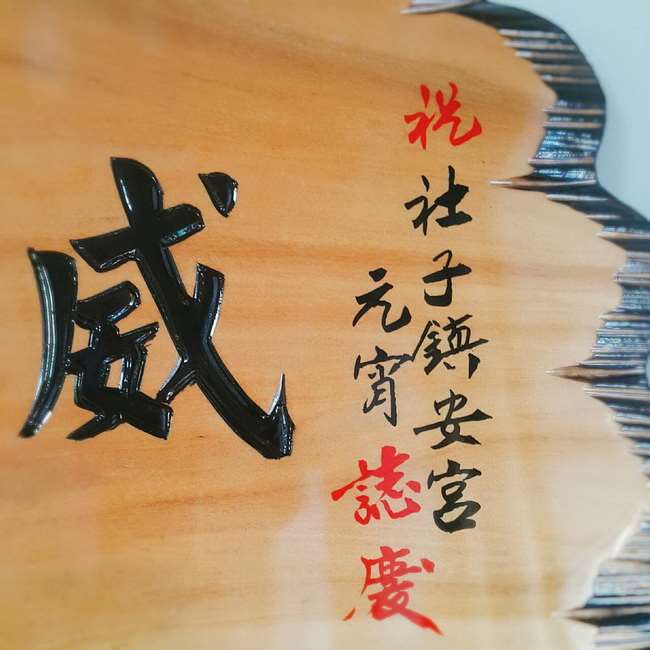 祝社子鎮安宮
元宵誌慶
威